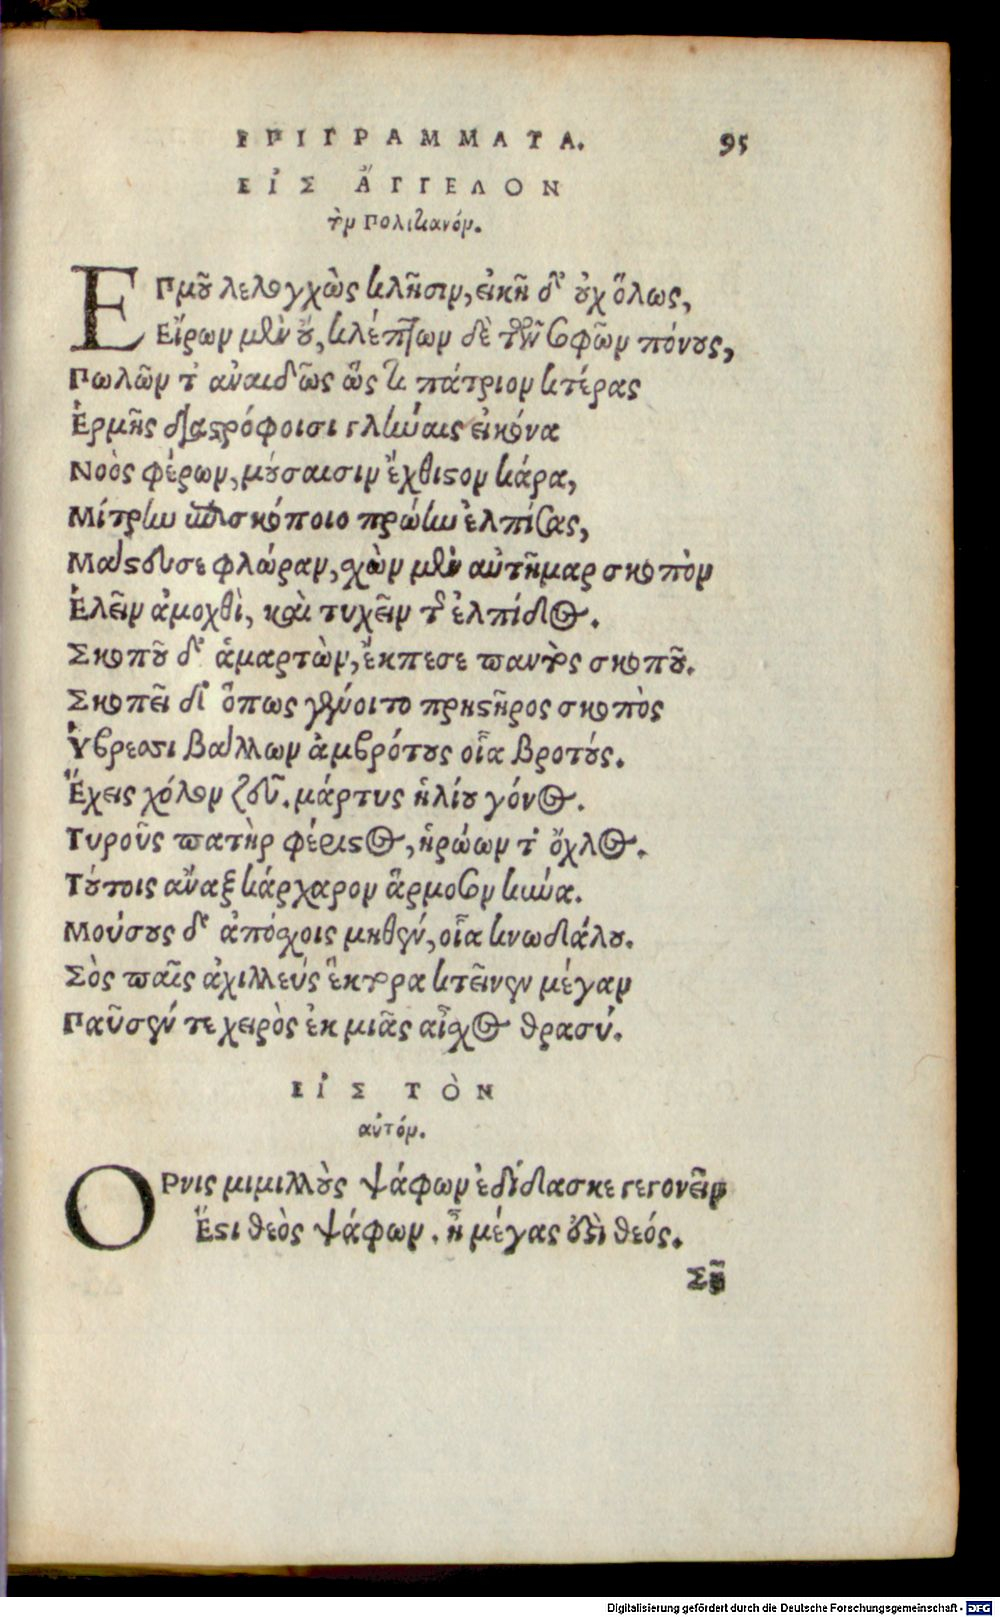 ΕΠΙΓΡΑΜΜΑΤΑ. 95
ΕἸΣ ἌΓΓΕΛΟΝ
τὸν Πολιτιανόν.
ΕΡμοῦ λελογχὼς κλῆσιν, εἰκῆ δ' οὐχ ὅλως,
Εἴρων μὲν οὔ, κλέπτων δὲ τῶν σοφῶν πόνους,
Πωλῶν τ' ἀναιδῶς ὥς τι πάτριον κτέρας
Ἑρμῆς διαστρόφοισι γληναις εἰκόνα
Νοὸς φέρων, μούσαισιν ἔχθιστον κάρα,
Μίτρην ἐπισκόποιο πρώην ἐλπίσας,
Μάστουσε φλώραν, χὼν μὲν αὐτῆμαρ σκοπὸν
Ἑλεῖν ἀμοχθὶ, καὶ τυχεῖν τῆς ἐλπίδος.
Σκοποῦ δ' ἁμαρτὼν, ἔκπεσε παντὸς σκοποῦ.
Σκοπεῖ δ' ὅπως γένοιτο πρηστῆρος σκοπὸς
Ὕβρεσι βάλλων ἀμβρότους οἷα βροτούς.
Ἔχεις χόλον ζοῦ. μάρτυς ἡλίου γόνος.
Τυροῦς πατὴρ φέριστος, ἡρώων τ' ὄχλος.
Τούτοις ἄναξ κάρχαρον ἅρμοσον κύνα.
Μούσους δ' ἀπόσχοις μηθὲν, οἷα κνωδάλου.
Σὸς παῖς ἀχιλλεύς ἕκτορα κτεῖνεν μέγαν
Παῦσέν τε χειρὸς ἐκ μιᾶς αἶσχος θρασύ.
ΕἸΣ ΤῸΝ
αὐτόν.
ΟΡνις μιμιλλοὺς ψάφων ἐδίδασκε γεγονεῖν
Ἔστι θεὸς ψάφων. ἦ μέγας ἐστὶ θεός.
Digitalisierung gefördert durch die Deutsche Forschungsgemeinschaft - DFG